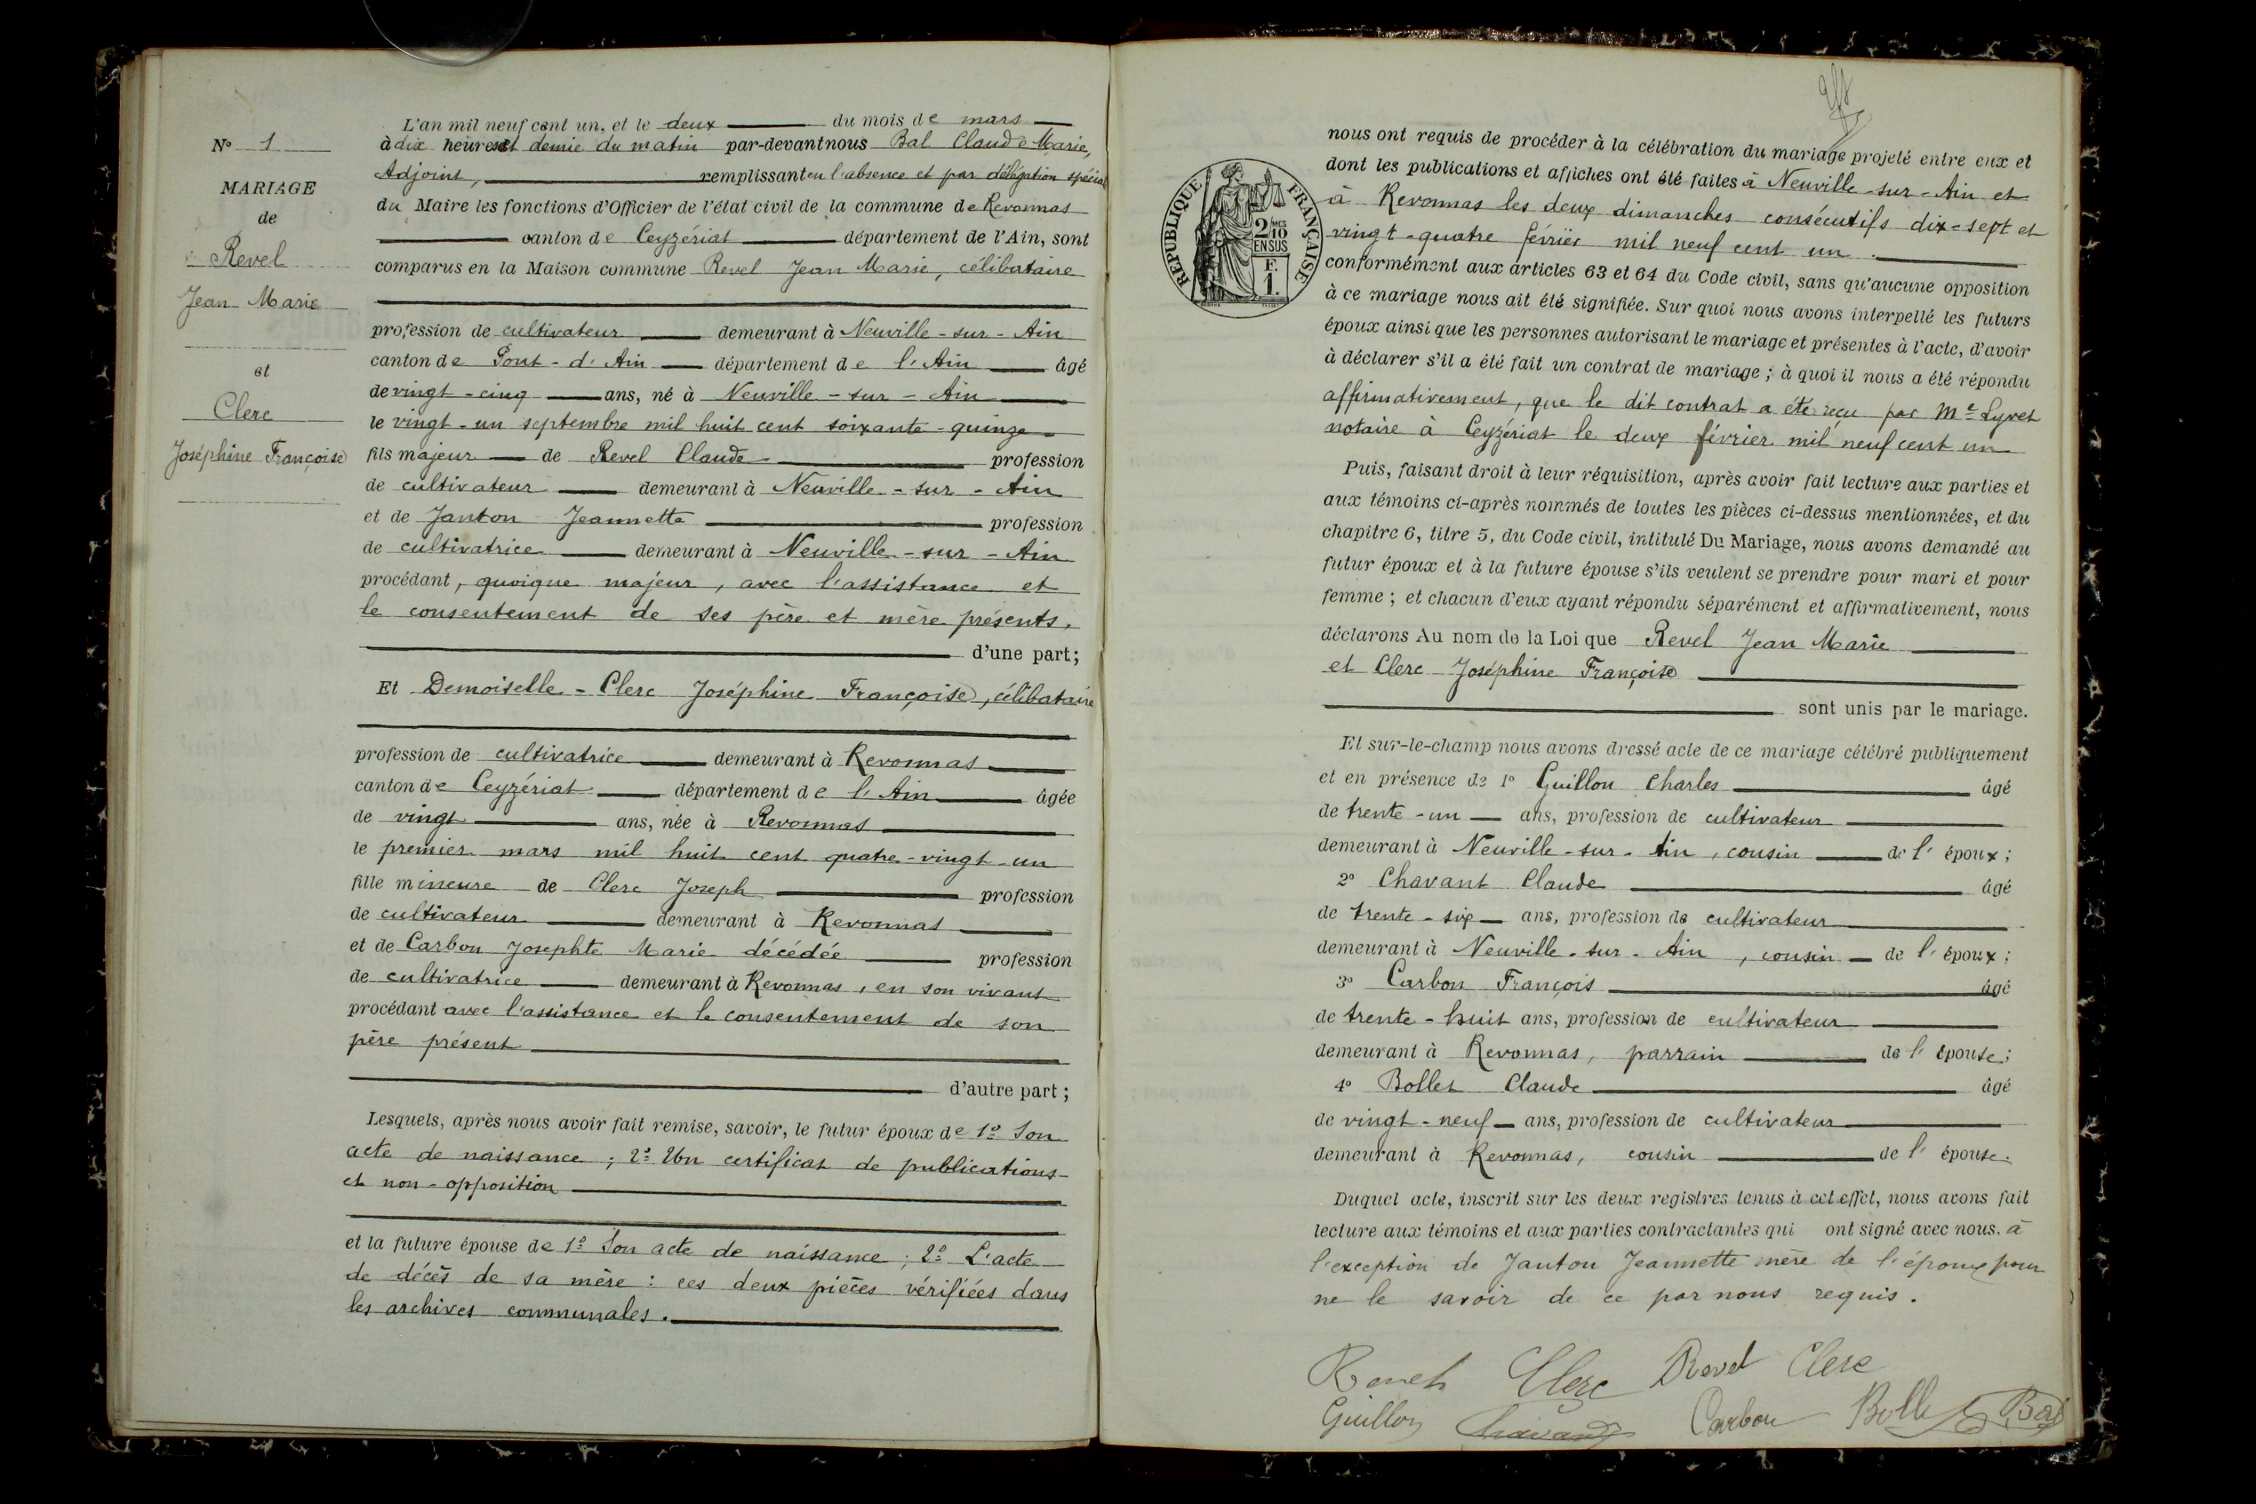 N° 1
MARIAGE
de
Revel
Jean Marie
et
Clerc
Joséphine Françoise
L'an mil neuf cent un, et le deux du mois de mars
à dix heures et demie du matin par-devant nous Bal Claude Marie,
Adjoint, remplissant en l'absence et par délégation spéciale
du Maire les fonctions d'Officier de l'état civil de la commune de Revonnas
canton de Ceyzériat département de l'Ain, sont
comparus en la Maison commune Revel Jean Marie, célibataire
profession de cultivateur demeurant à Neuville-sur-Ain
canton de Pont-d'Ain département de l'Ain âgé
de vingt-cinq ans, né à Neuville-sur-Ain
le vingt-un septembre mil huit cent soixante-quinze
fils majeur de Revel Claude profession
de cultivateur demeurant à Neuville-sur-Ain
et de Janton Jeannette profession
de cultivatrice demeurant à Neuville-sur-Ain
procédant, quoique majeur, avec l'assistance et
le consentement de ses père et mère présents,
d'une part;
Et Demoiselle Clerc Joséphine Françoise, célibataire
profession de cultivatrice demeurant à Revonnas
canton de Ceyzériat département de l'Ain âgée
de vingt ans, née à Revonnas
le premier mars mil huit cent quatre-vingt-un
fille mineure de Clerc Joseph profession
de cultivateur demeurant à Revonnas
et de Carbon Josephte Marie décédée profession
de cultivatrice demeurant à Revonnas, en son vivant
procédant avec l'assistance et le consentement de son
père présent
d'autre part;
Lesquels, après nous avoir fait remise, savoir, le futur époux de 1° Son
acte de naissance; 2° Un certificat de publications
et non-opposition
et la future épouse de 1° Son acte de naissance; 2° L'acte
de décès de sa mère: ces deux pièces vérifiées dans
les archives communales.
RÉPUBLIQUE FRANÇAISE
2/10 MES
EN SUS
F.
1.
nous ont requis de procéder à la célébration du mariage projeté entre eux et
dont les publications et affiches ont été faites à Neuville-sur-Ain et
à Revonnas les deux dimanches consécutifs dix-sept et
vingt-quatre février mil neuf cent un.
conformément aux articles 63 et 64 du Code civil, sans qu'aucune opposition
à ce mariage nous ait été signifiée. Sur quoi nous avons interpellé les futurs
époux ainsi que les personnes autorisant le mariage et présentes à l'acte, d'avoir
à déclarer s'il a été fait un contrat de mariage; à quoi il nous a été répondu
affirmativement, que le dit contrat a été reçu par Me Lyvet
notaire à Ceyzériat le deux février mil neuf cent un
Puis, faisant droit à leur réquisition, après avoir fait lecture aux parties et
aux témoins ci-après nommés de toutes les pièces ci-dessus mentionnées, et du
chapitre 6, titre 5, du Code civil, intitulé Du Mariage, nous avons demandé au
futur époux et à la future épouse s'ils veulent se prendre pour mari et pour
femme; et chacun d'eux ayant répondu séparément et affirmativement, nous
déclarons Au nom de la Loi que Revel Jean Marie
et Clerc Joséphine Françoise
sont unis par le mariage.
Et sur-le-champ nous avons dressé acte de ce mariage célébré publiquement
et en présence de 1° Guillon Charles âgé
de trente-un ans, profession de cultivateur
demeurant à Neuville-sur-Ain, cousin de l'époux;
2° Chavant Claude âgé
de trente-six ans, profession de cultivateur
demeurant à Neuville-sur-Ain, cousin de l'époux;
3° Carbon François âgé
de trente-huit ans, profession de cultivateur
demeurant à Revonnas, parrain de l'épouse;
4° Bollet Claude âgé
de vingt-neuf ans, profession de cultivateur
demeurant à Revonnas, cousin de l'épouse.
Duquel acte, inscrit sur les deux registres tenus à cet effet, nous avons fait
lecture aux témoins et aux parties contractantes qui ont signé avec nous. à
l'exception de Janton Jeannette mère de l'époux pour
ne le savoir de ce par nous requis.
Revel Clerc Revel Clerc
Guillon Chavant Carbon Bollet Bal